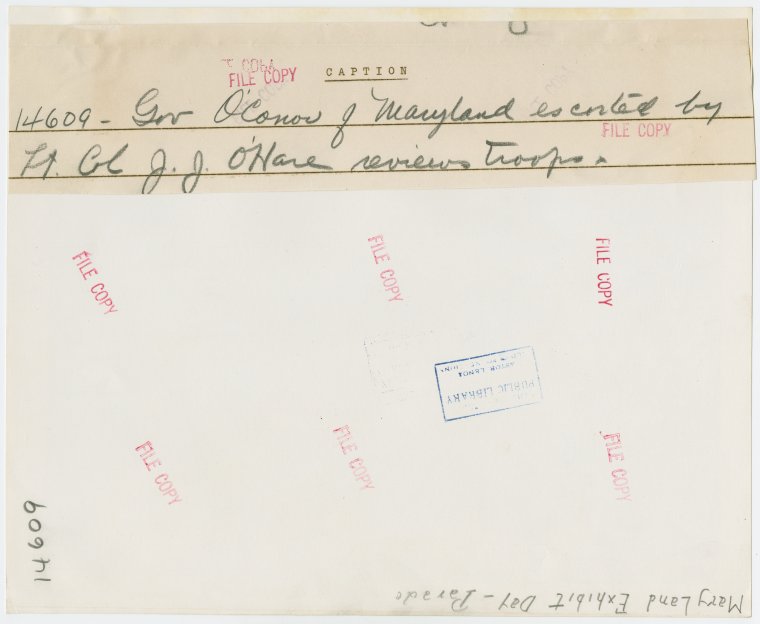 FILE COPY
CAPTION
14609 - Gov O'Conor of Maryland escorted by
FILE COPY
Lt. Col J. J. O'Hare reviews troops.
FILE COPY
FILE COPY
FILE COPY
PUBLIC LIBRARY
ASTOR LENOX
FILE COPY
FILE COPY
FILE COPY
14609
Maryland Exhibit Day - Parade